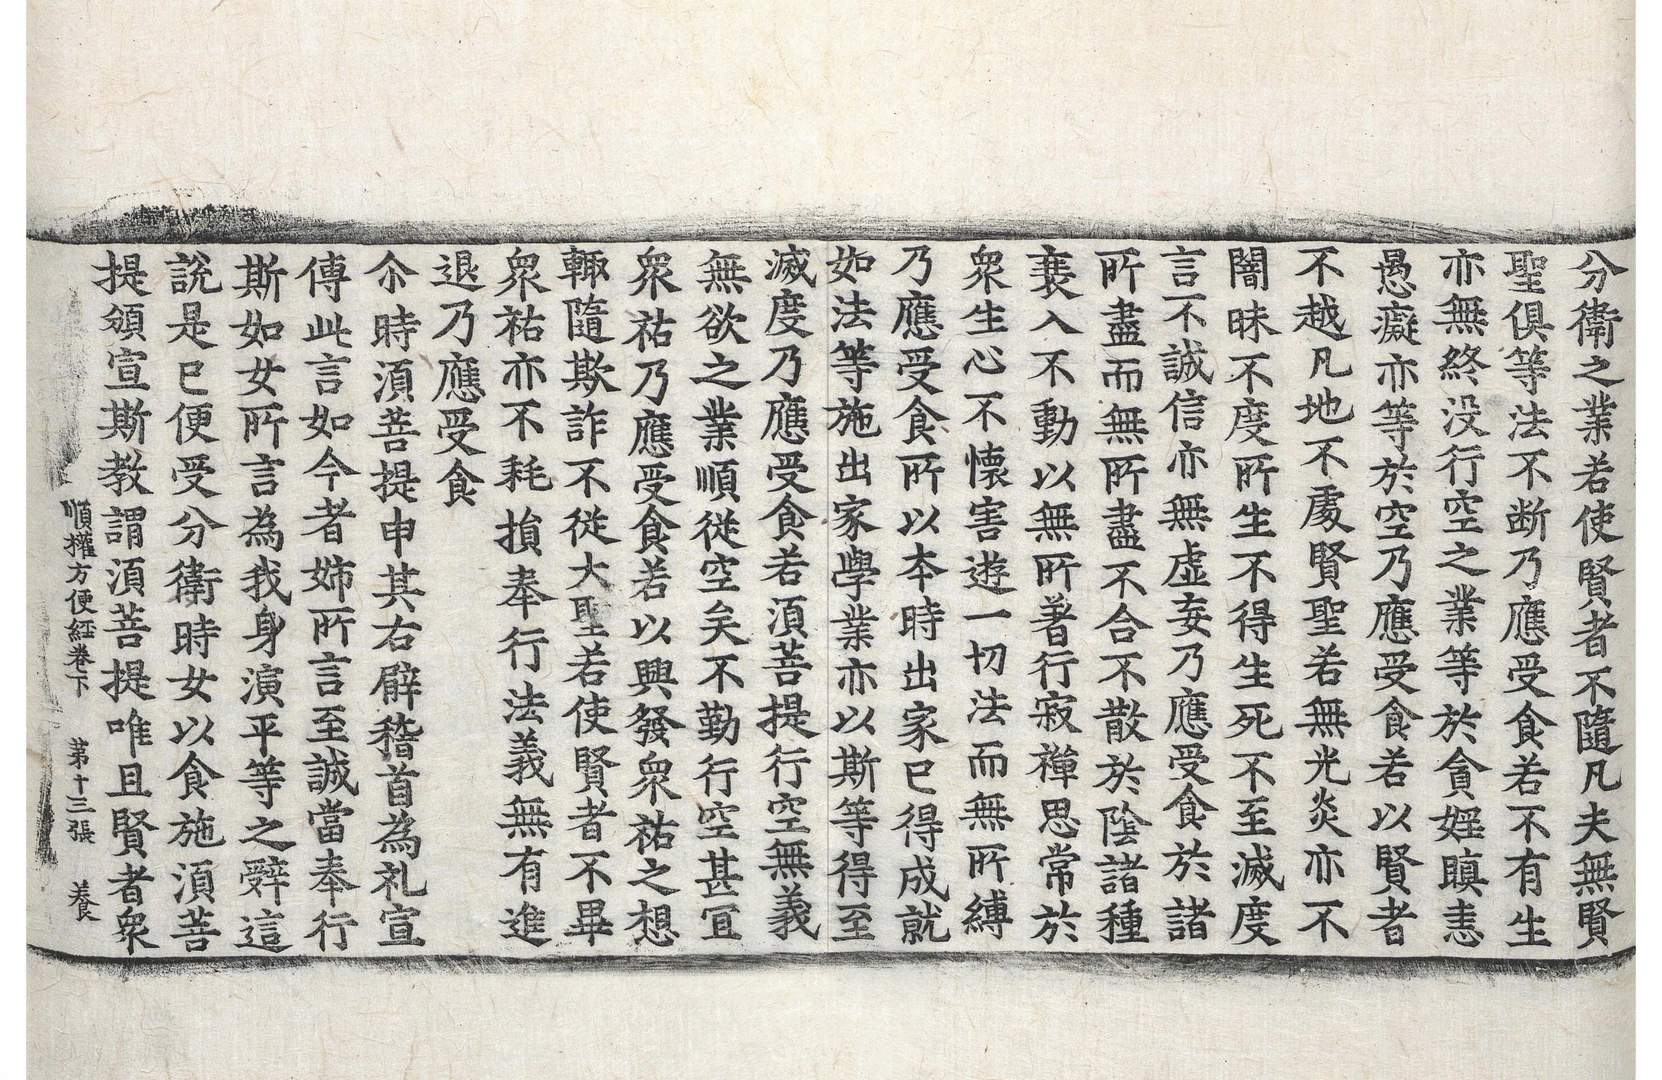 分衛之業若使賢者不隨凡夫無賢
聖俱等法不断乃應受食若不有生
亦無終没行空之業等於貪婬瞋恚
愚癡亦等於空乃應受食若以賢者
不越凡地不處賢聖若無光炎亦不
闇昧不度所生不得生死不至滅度
言不誠信亦無虛妄乃應受食於諸
所盡而無所盡不合不散於陰諸種
衰入不動以無所著行寂禪思常於
衆生心不懷害遊一切法而無所縛
乃應受食所以本時出家已得成就
如法等施出家學業亦以斯等得至
滅度乃應受食若須菩提行空無義
無欲之業順從空矣不勤行空甚宜
衆祐乃應受食若以興發衆祐之想
輙隨欺詐不從大聖若使賢者不畢
衆祐亦不耗損奉行法義無有進
退乃應受食
尒時須菩提申其右臂稽首為礼宣
傳此言如今者姉所言至誠當奉行
斯如女所言為我身演平等之辭這
說是已便受分衛時女以食施須菩
提頒宣斯教謂須菩提唯且賢者衆
順權方便経卷下 第十三張 養